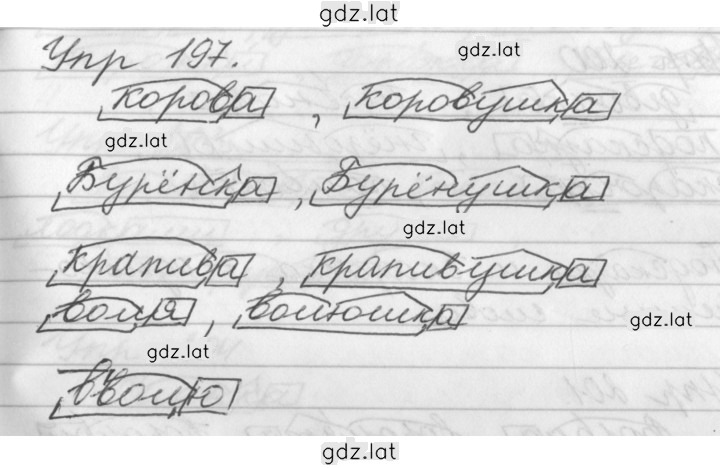 gdz.lat
Упр 197.
gdz.lat
корова, коровушка
gdz.lat
Бурёнка, Бурёнушка
gdz.lat
крапива, крапивушка
воля, волюшка
gdz.lat
gdz.lat
вволю
gdz.lat